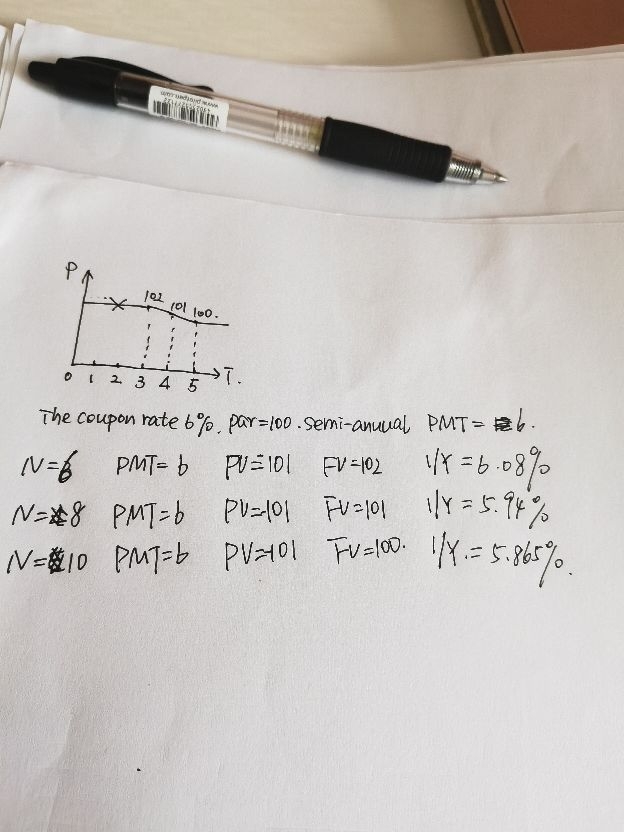 www.pilotpen.com
P
102 101 100.
0 1 2 3 4 5 T.
The coupon rate 6%, par=100. semi-anuual PMT= 6.
N=6 PMT=6 PV=-101 FV=102 I/Y=6.08%
N=8 PMT=6 PV=-101 FV=101 I/Y=5.94%
N=10 PMT=6 PV=-101 FV=100. I/Y.=5.865%.